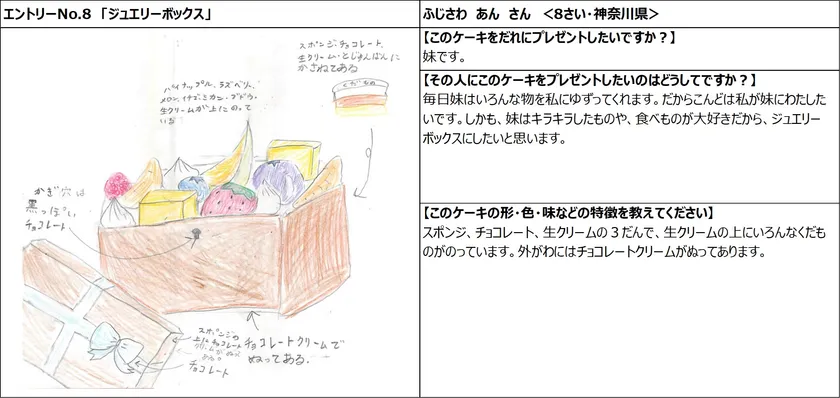 エントリーNo.8 「ジュエリーボックス」
ふじさわ あん さん <8さい・神奈川県>
【このケーキをだれにプレゼントしたいですか？】
妹です。
【その人にこのケーキをプレゼントしたいのはどうしてですか？】
毎日妹はいろんな物を私にゆずってくれます。だからこんどは私が妹にわたし
たいです。しかも、妹はキラキラしたものや、食べものが大好きだから、ジュエリー
ボックスにしたいと思います。
【このケーキの形・色・味などの特徴を教えてください】
スポンジ、チョコレート、生クリームの３だんで、生クリームの上にいろんなくだも
のがのっています。外がわにはチョコレートクリームがぬってあります。
スポンジ・チョコレート、
生クリーム・とじゅんばんに
かさねてある
くだもの
パイナップル、ラズベリー、
メロン、イチゴ、ミカン、ブドウ、
生クリームが上にのって
いる
かぎ穴は
黒っぽい
チョコレート
スポンジの
上にチョコレート
チョコレート
チョコレートクリームで
ぬってある.